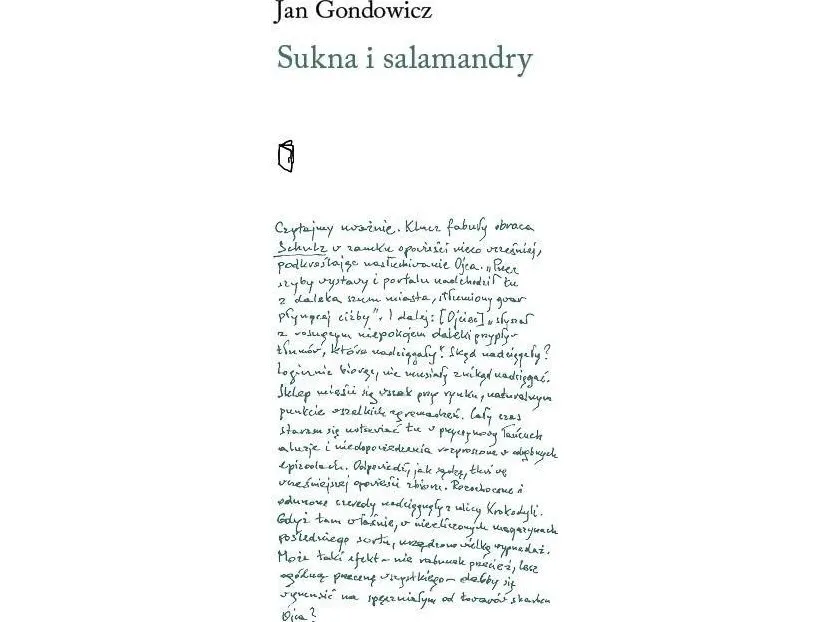 Jan Gondowicz
Sukna i salamandry
Czytajmy uważnie. Klucz fabuły obraca
Schulz w zamku opowieści nieco wcześniej,
podkreślając nasłuchiwanie Ojca. „Przez
szyby wystawy i portalu nadchodził tu
z daleka szum miasta, stłumiony gwar
płynącej ciżby”. I dalej: [Ojciec] „słyszał
z rosnącym niepokojem daleki przypływ
tłumów, które nadciągały”. Skąd nadciągały?
Logicznie biorąc, nie musiały znikąd nadciągać.
Sklep mieści się wszak przy rynku, naturalnym
punkcie wszelkich zgromadzeń. Cały czas
staram się ustawiać tu w przyczynowy łańcuch
aluzje i niedopowiedzenia rozproszone w odrębnych
epizodach. Odpowiedź, jak sądzę, tkwi we
wcześniejszej opowieści zbioru. Rozochocone i
odurzone czeredy nadciągnęły z ulicy Krokodyli.
Gdyż tam właśnie, w niezliczonych magazynach
pośledniego sortu, urządzono wielką wyprzedaż.
Może taki efekt – nie rabunek przecież, lecz
ogólną przecenę wszystkiego – dałoby się
wymusić na spęczniałym od towarów skarbcu
Ojca?